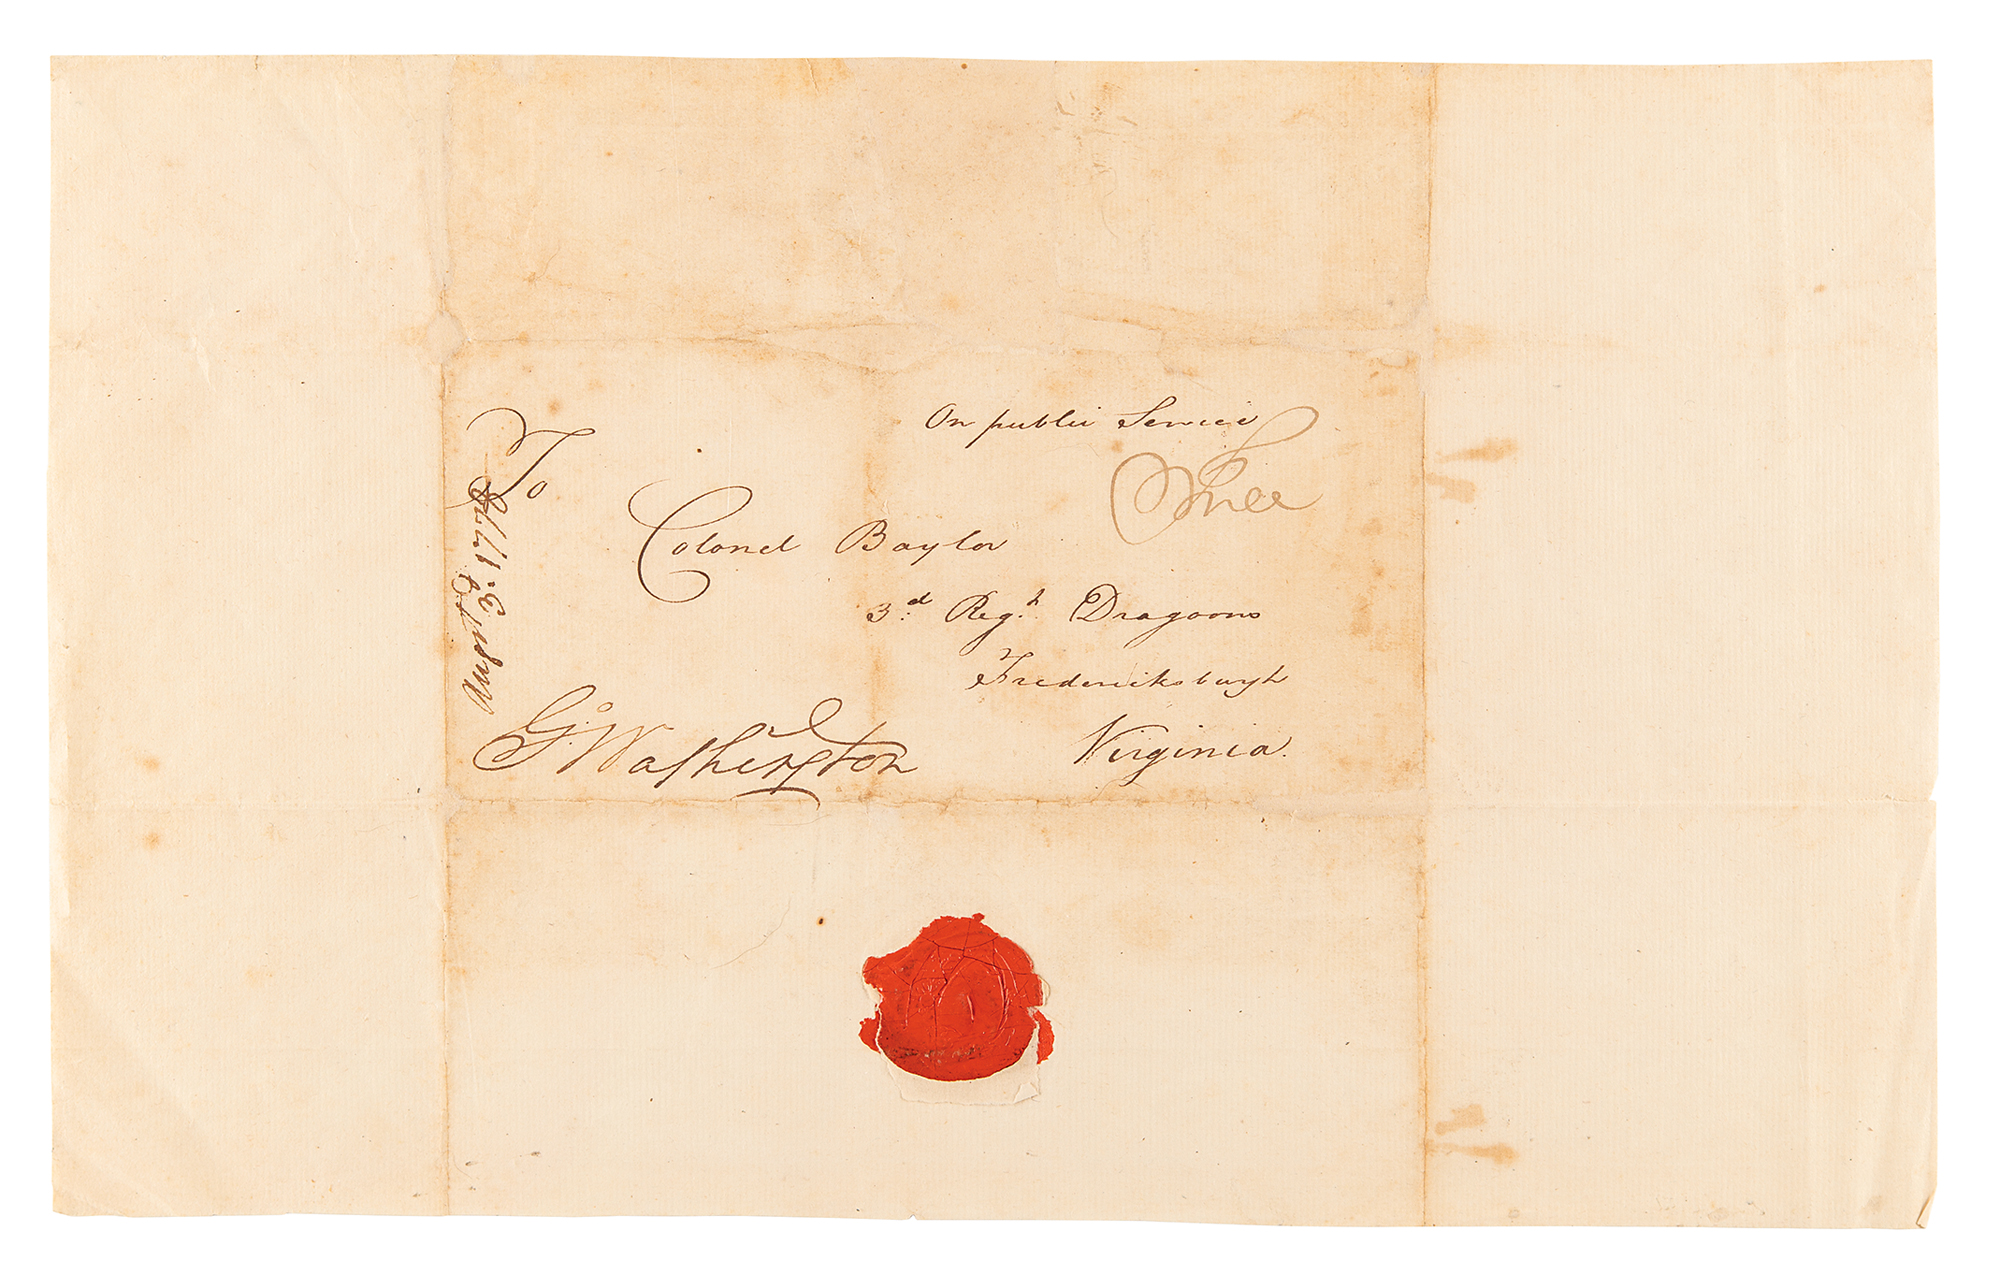 On public Service
Free
To
Colonel Baylor
3.d Reg.t Dragoons
Fredericksburgh
Virginia.
Go: Washington
3. 1778